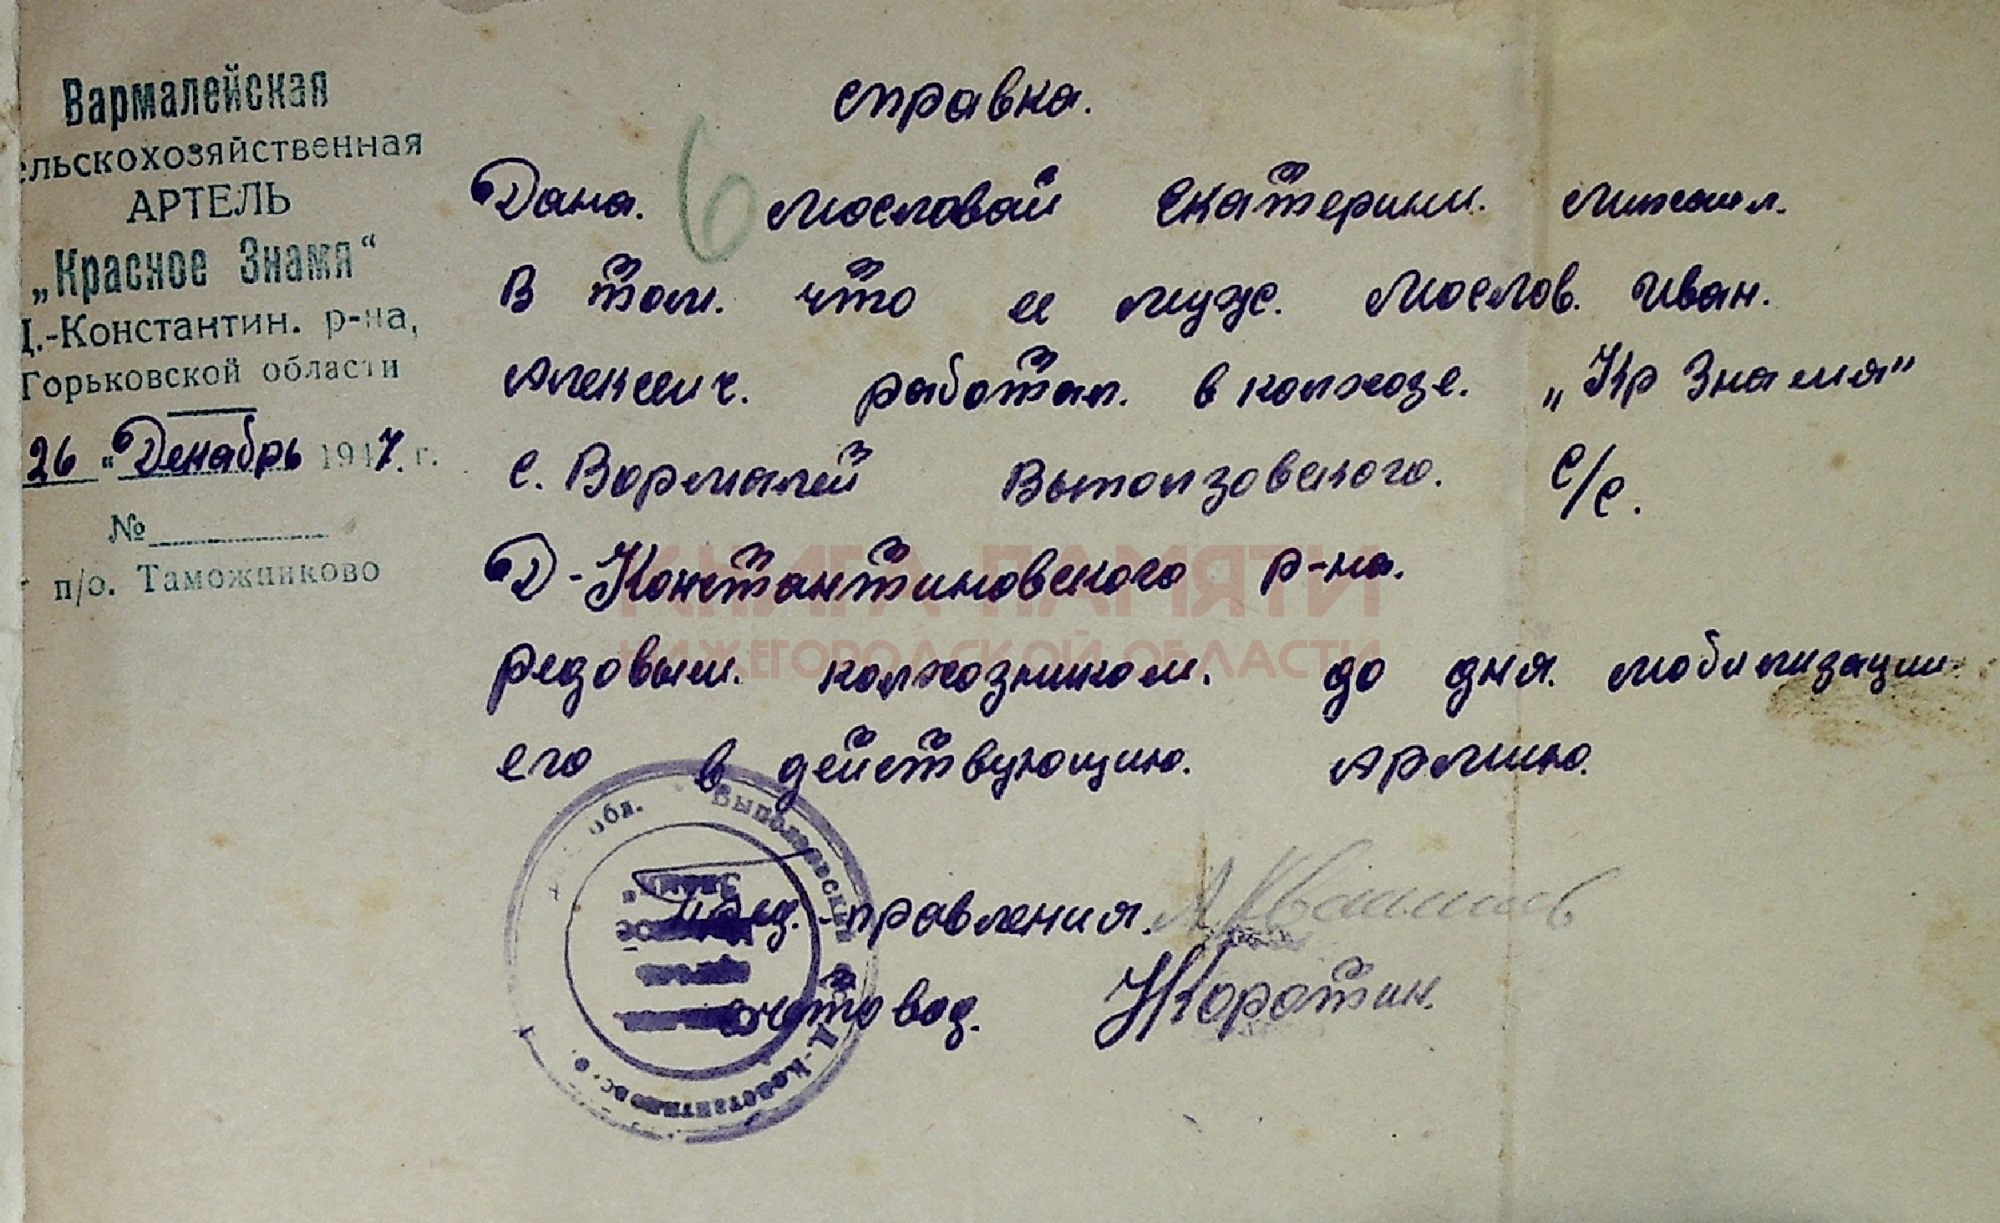 Вармалейская
ельскохозяйственная
АРТЕЛЬ
„Красное Знамя“
Д.-Константин. р-на,
Горьковской области
26 " Декабрь 1947. г.
№
п/о. Таможниково
справка.
6
Дана. Масловай Екатерини. Михаил.
В том. что ее муж. Маслов. Иван.
Алексеич. работал. в колхозе. „Кр Знамя"
с. Вармалей Выползовского. С/с.
Д-Константиновского р-на.
редовым. колхозником. до дня. мобилизации.
его в действующию. Армию.
Пред. правления.
счетовод. Коротин.
обл. Выползовский
Д.-Константиновс
Знамя
КНИГА ПАМЯТИ
НИЖЕГОРОДСКОЙ ОБЛАСТИ